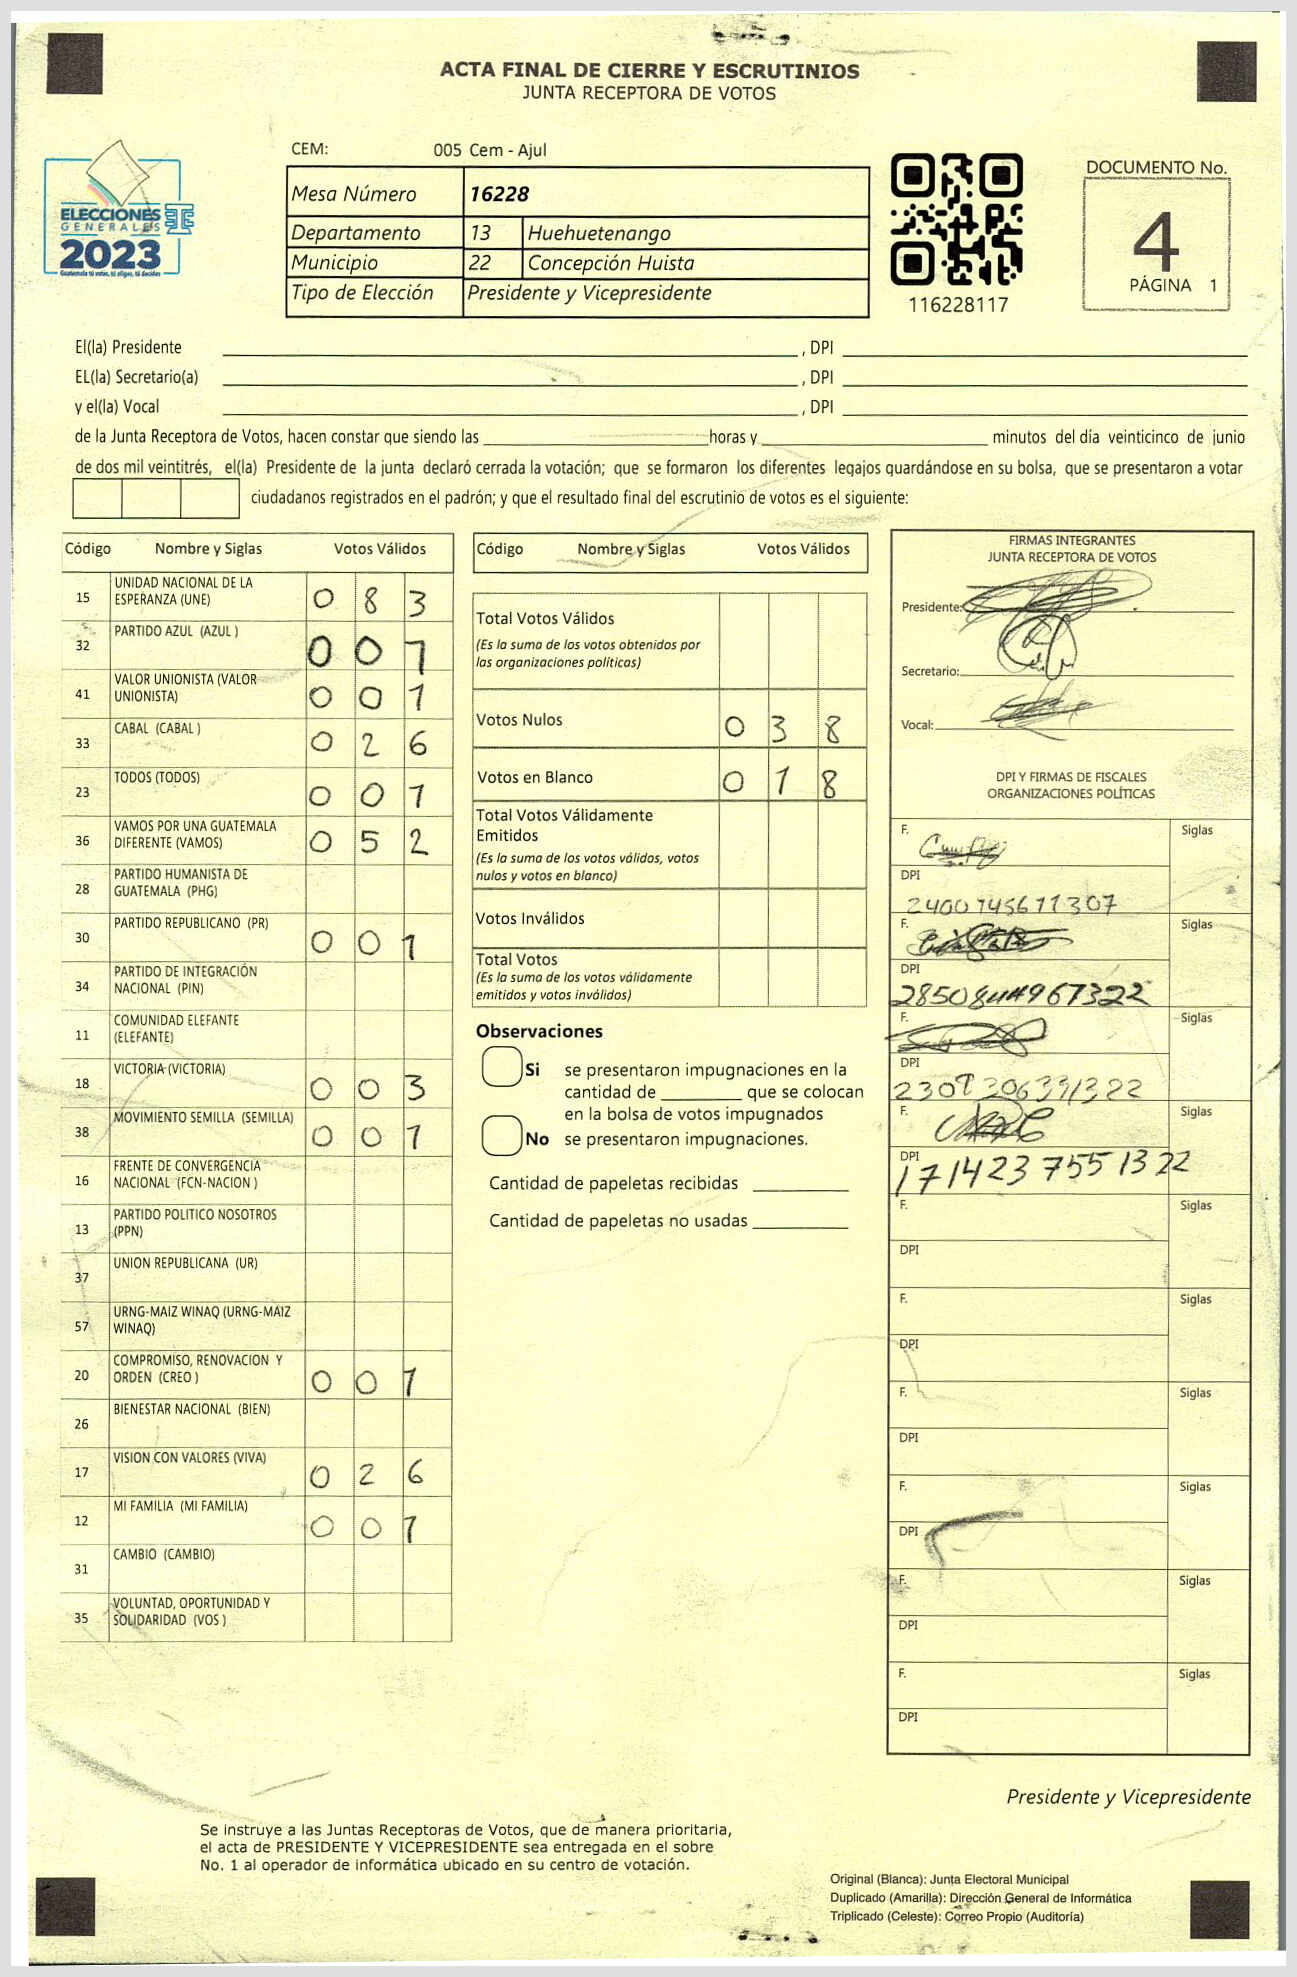 ACTA FINAL DE CIERRE Y ESCRUTINIOS
JUNTA RECEPTORA DE VOTOS
CEM: 005 Cem - Ajul
Mesa Número 16228
Departamento 13 Huehuetenango
Municipio 22 Concepción Huista
Tipo de Elección Presidente y Vicepresidente
ELECCIONES
GENERALES
2023
Guatemala tú votas, tú eliges, tú decides
116228117
DOCUMENTO No.
4
PÁGINA 1
El(la) Presidente , DPI
EL(la) Secretario(a) , DPI
y el(la) Vocal , DPI
de la Junta Receptora de Votos, hacen constar que siendo las horas y minutos del día veinticinco de junio
de dos mil veintitrés, el(la) Presidente de la junta declaró cerrada la votación; que se formaron los diferentes legajos guardándose en su bolsa, que se presentaron a votar
ciudadanos registrados en el padrón; y que el resultado final del escrutinio de votos es el siguiente:
Código Nombre y Siglas Votos Válidos
15 UNIDAD NACIONAL DE LA ESPERANZA (UNE) 0 8 3
32 PARTIDO AZUL (AZUL ) 0 0 1
41 VALOR UNIONISTA (VALOR UNIONISTA) 0 0 1
33 CABAL (CABAL ) 0 2 6
23 TODOS (TODOS) 0 0 1
36 VAMOS POR UNA GUATEMALA DIFERENTE (VAMOS) 0 5 2
28 PARTIDO HUMANISTA DE GUATEMALA (PHG)
30 PARTIDO REPUBLICANO (PR) 0 0 1
34 PARTIDO DE INTEGRACIÓN NACIONAL (PIN)
11 COMUNIDAD ELEFANTE (ELEFANTE)
18 VICTORIA (VICTORIA) 0 0 3
38 MOVIMIENTO SEMILLA (SEMILLA) 0 0 1
16 FRENTE DE CONVERGENCIA NACIONAL (FCN-NACION )
13 PARTIDO POLITICO NOSOTROS (PPN)
37 UNION REPUBLICANA (UR)
57 URNG-MAIZ WINAQ (URNG-MAIZ WINAQ)
20 COMPROMISO, RENOVACION Y ORDEN (CREO ) 0 0 1
26 BIENESTAR NACIONAL (BIEN)
17 VISION CON VALORES (VIVA) 0 2 6
12 MI FAMILIA (MI FAMILIA) 0 0 1
31 CAMBIO (CAMBIO)
35 VOLUNTAD, OPORTUNIDAD Y SOLIDARIDAD (VOS )
Código Nombre y Siglas Votos Válidos
Total Votos Válidos
(Es la suma de los votos obtenidos por
las organizaciones políticas)
Votos Nulos 0 3 8
Votos en Blanco 0 1 8
Total Votos Válidamente
Emitidos
(Es la suma de los votos válidos, votos
nulos y votos en blanco)
Votos Inválidos
Total Votos
(Es la suma de los votos válidamente
emitidos y votos inválidos)
Observaciones
Si se presentaron impugnaciones en la
cantidad de que se colocan
en la bolsa de votos impugnados
No se presentaron impugnaciones.
Cantidad de papeletas recibidas
Cantidad de papeletas no usadas
FIRMAS INTEGRANTES
JUNTA RECEPTORA DE VOTOS
Presidente:
Secretario:
Vocal:
DPI Y FIRMAS DE FISCALES
ORGANIZACIONES POLÍTICAS
F. Siglas
DPI
2400145611307
F. Siglas
DPI
F. Siglas
DPI
F. Siglas
DPI
1714237551322
F. Siglas
DPI
F. Siglas
DPI
F. Siglas
DPI
F. Siglas
DPI
F. Siglas
DPI
F. Siglas
DPI
Presidente y Vicepresidente
Se instruye a las Juntas Receptoras de Votos, que de manera prioritaria,
el acta de PRESIDENTE Y VICEPRESIDENTE sea entregada en el sobre
No. 1 al operador de informática ubicado en su centro de votación.
Original (Blanca): Junta Electoral Municipal
Duplicado (Amarilla): Dirección General de Informática
Triplicado (Celeste): Correo Propio (Auditoría)